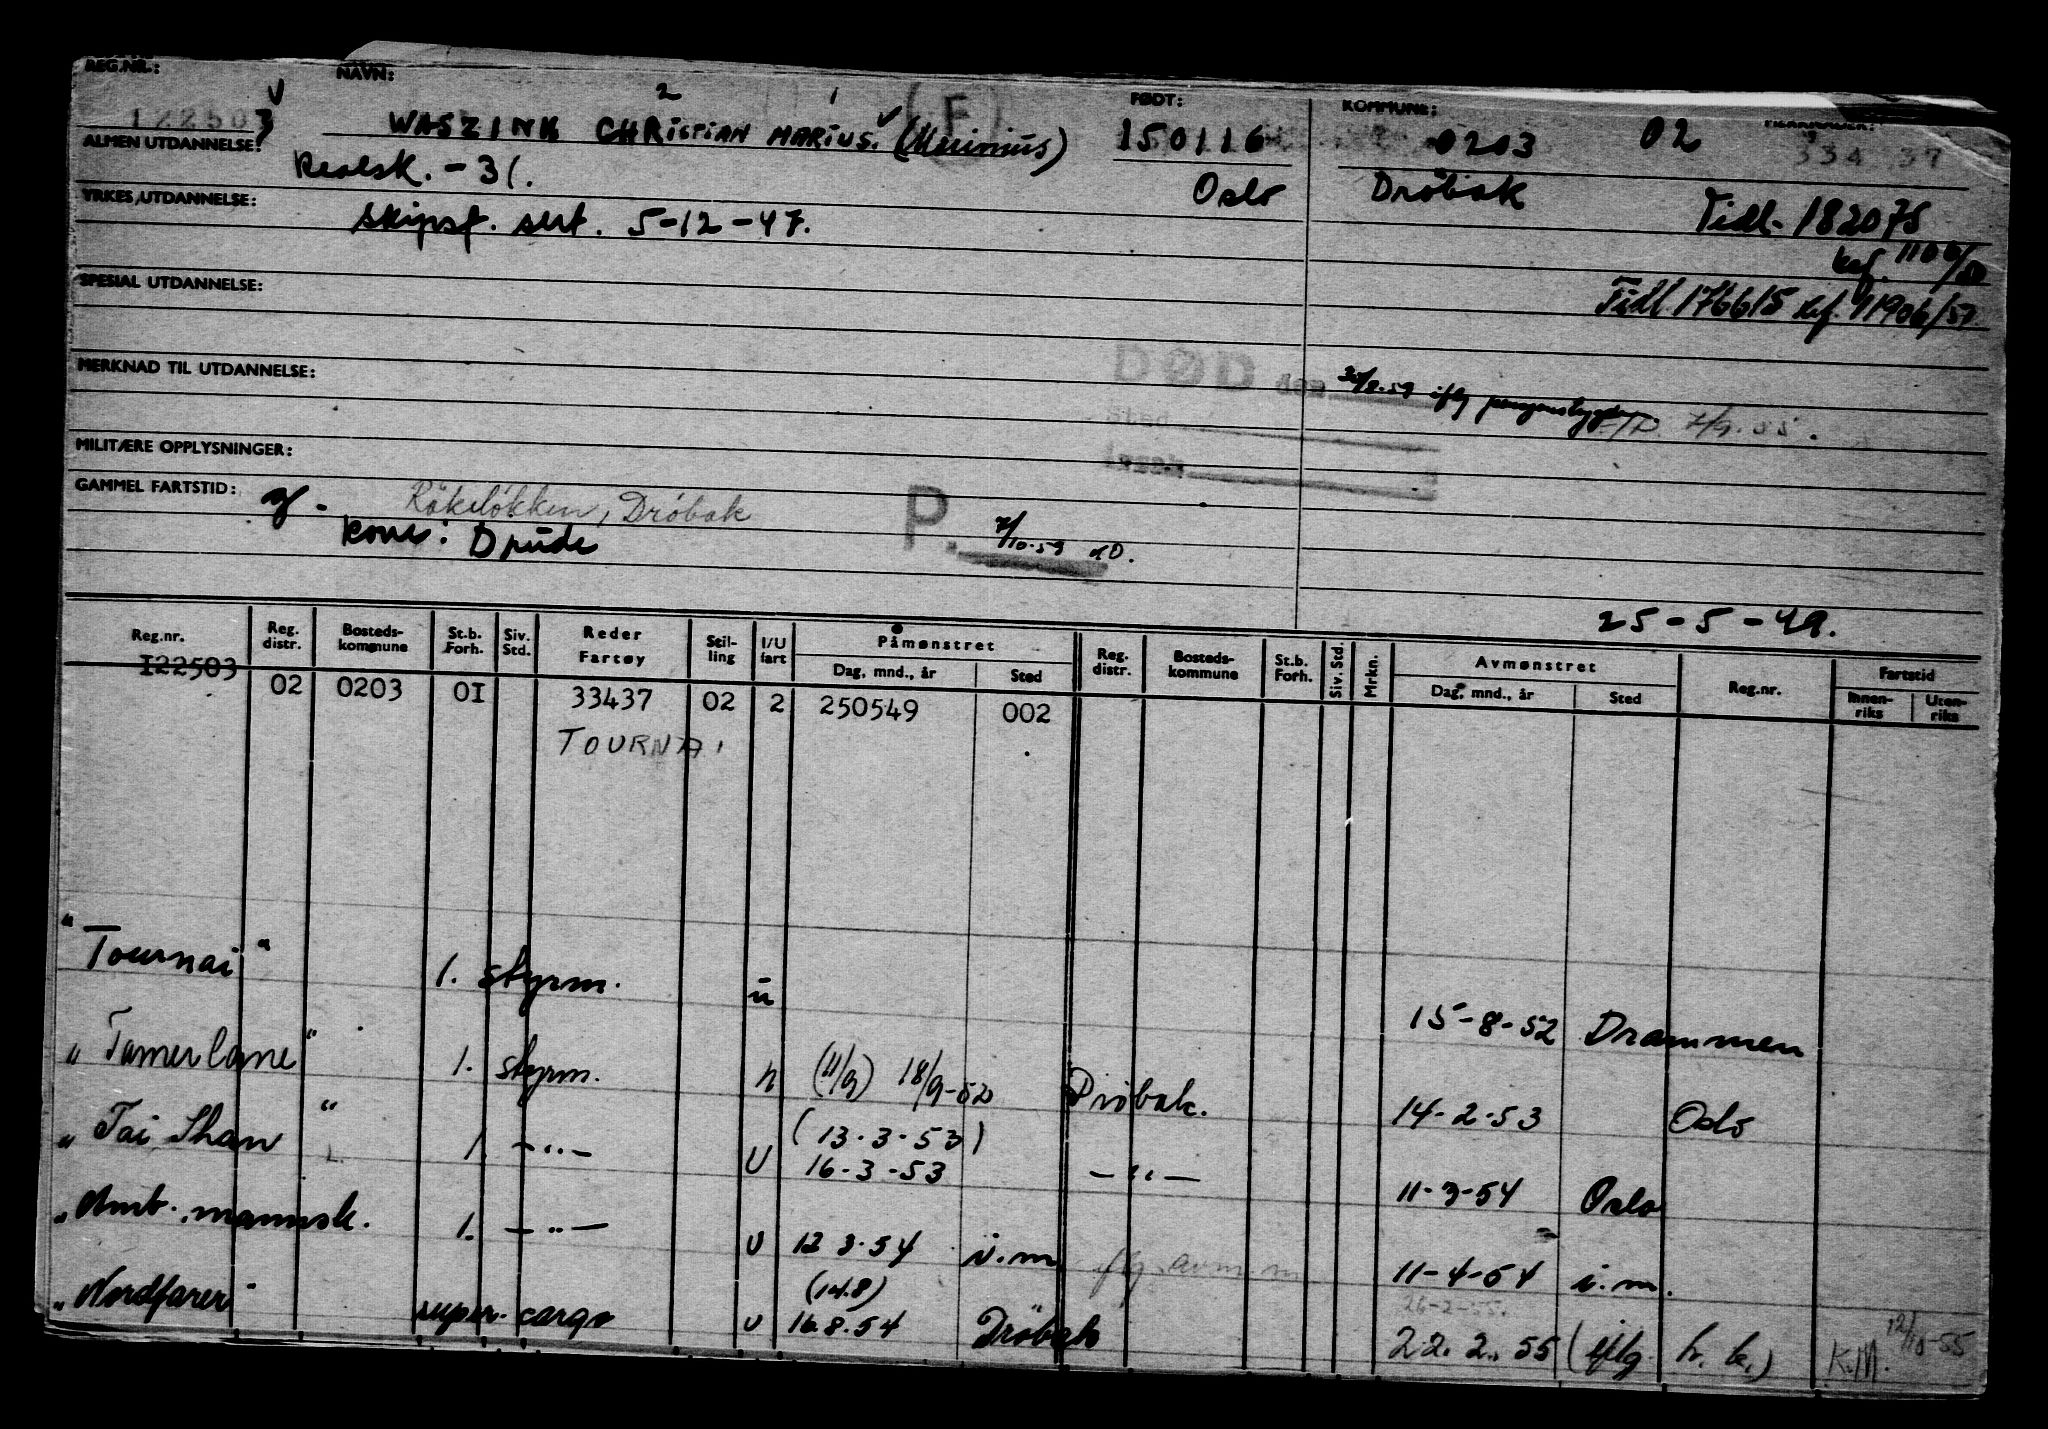 REG.NR.: NAVN: FØDT: KOMMUNE:
122503 WASZINK CHRISTIAN MARIUS. 150116 0203 02 334 37
2 1 (F)
ALMEN UTDANNELSE: Realsk. - 31. Oslo Dröbak Tidl. 182075
YRKES UTDANNELSE: skipsf. sert. 5-12-47.
SPESIAL UTDANNELSE: Tidl 176615
MERKNAD TIL UTDANNELSE: DØD den iflg
MILITÆRE OPPLYSNINGER:
GAMMEL FARTSTID: Dröbak
kone: Drude P. 7/10-59
25-5-49.
Reg.nr. Reg. distr. Bosteds-kommune St.b. Forh. Siv. Std. Reder Fartøy Stil-ling I/U fart Påmønstret Dag, mnd., år Sted Reg. distr. Bosteds-kommune St.b. Forh. Siv. Std. Mrkn. Avmønstret Dag, mnd., år Sted Reg.nr. Fartstid Innen-riks Uten-riks
I22503 02 0203 0I 33437 02 2 250549 002
TOURNAI
"Tournai" 1. styrm. u 15-8-52 Drammen
"Tamerlane" 1. styrm. (11/9) 18/9-52 Dröbak. 14-2-53 Oslo
(13-3-53)
"Tai Shan" 1. -"- U 16-3-53 -"- 11-3-54 Oslo
"Amb. mannsk. 1. -"- U 12 3-54 i.m 11-4-54 i.m.
(14.8) 26-2-55.
"Nordfarer" super. cargo U 16.8.54 Dröbak 22.2.55 (iflg h.k.) K.M. 12/10-55